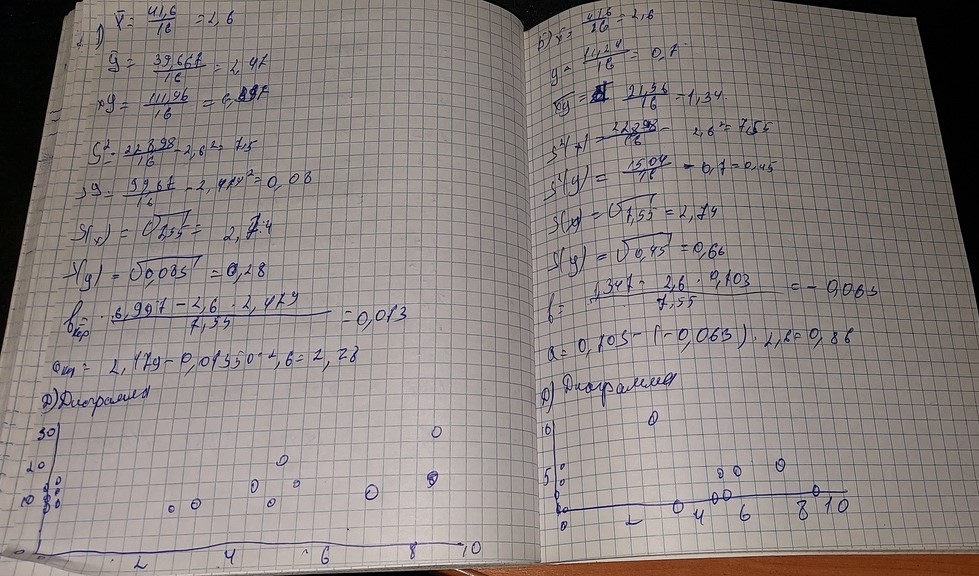 x̅ = 41,6/16 = 2,6
y̅ = 39,667/16 = 2,47
xy = 111,96/16 =
S² = 228,98/16 - 2,6² = 7,5
- 2,474² = 0,08
S(x) = √7,55 = 2,74
S(y) = √0,085 = 0,28
6,997 - 2,6 · 2,479 / 7,55 = 0,013
Д) Диаграмма
30
20
10
0 2 4 6 8 10
Б) x̅ = 41,6/16 = 2,6
y = 11,24/16 = 0,7
xy = 21,56/16 = 1,34
S²(x) = 228,98/16 - 2,6² = 7,55
S²(y) = 15,04/16 - 0,7 = 0,45
S(x) = √7,55 = 2,74
S(y) = √0,45 = 0,66
1,347 - 2,6 · 0,703 / 7,55 = - 0,063
a = 0,703 - (-0,063) · 2,6 = 0,86
Д) Диаграмма
10
5
2 4 6 8 10